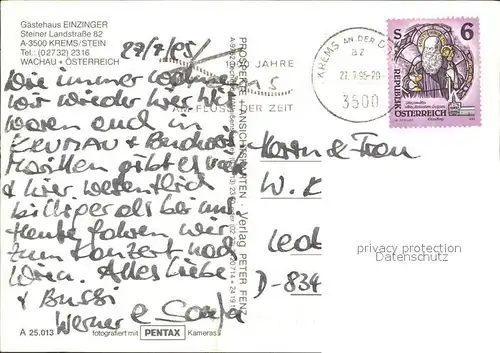 Gästehaus EINZINGER
Steiner Landstraße 82
A-3500 KREMS/STEIN
Tel.: (0 27 32) 23 16
WACHAU • ÖSTERREICH
27/7/95
Wie immer wohnen
wir wieder hier. Wir
waren auch in
KRUMAU +
Marillen gibt es
& hier wesentlich
billiger als bei uns.
Heute fahren wir
zum Konzert nach
Wien. Alles Liebe
& Bussi
Werner & Sonja
A 25.013
fotografiert mit PENTAX Kameras
PROSPEKTE + ANSICHTSKARTEN - Verlag PETER FENZ
JAHRE
AM FLUSS DER ZEIT
KREMS AN DER D
27.7.95-20
3500
S 6
REPUBLIK
ÖSTERREICH
Herrn & Frau
W. K
Led
D-834
privacy protection
Datenschutz